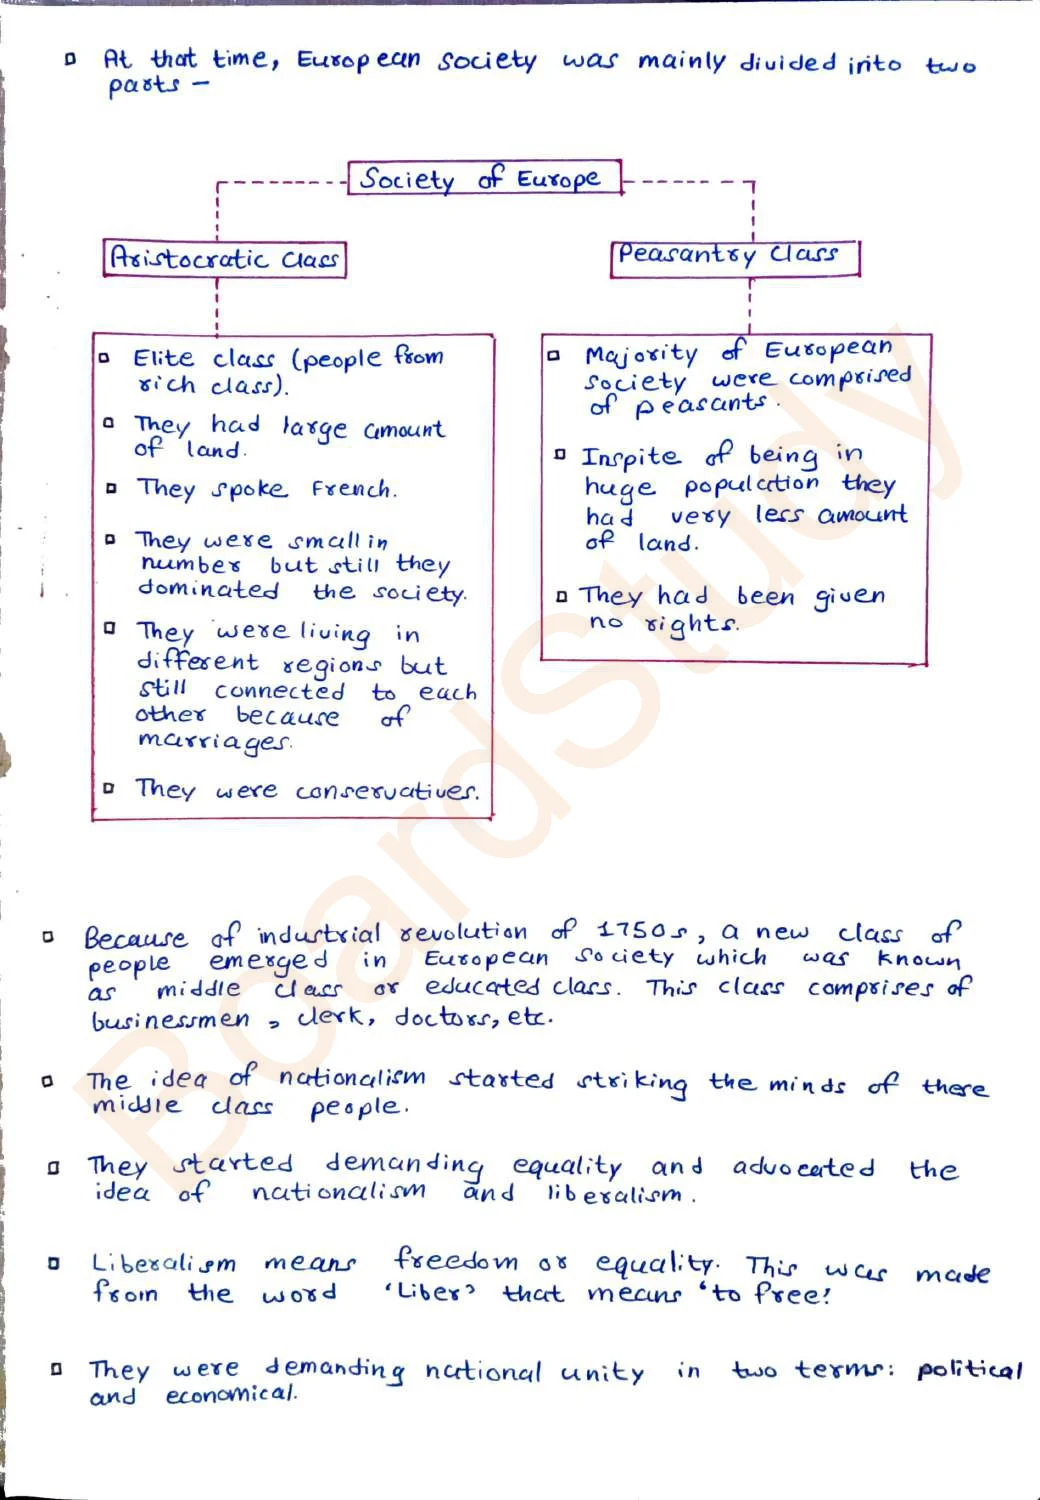 At that time, European society was mainly divided into two
parts —
Society of Europe
Aristocratic Class
Peasantry Class
Elite class (people from
rich class).
They had large amount
of land.
They spoke French.
They were small in
number but still they
dominated the society.
They were living in
different regions but
still connected to each
other because of
marriages.
They were conservatives.
Majority of European
society were comprised
of peasants.
Inspite of being in
huge population they
had very less amount
of land.
They had been given
no rights.
Because of industrial revolution of 1750s, a new class of
people emerged in European society which was known
as middle class or educated class. This class comprises of
businessmen, clerk, doctors, etc.
The idea of nationalism started striking the minds of there
middle class people.
They started demanding equality and advocated the
idea of nationalism and liberalism.
Liberalism means freedom or equality. This was made
from the word 'Liber' that means 'to free'.
They were demanding national unity in two terms: political
and economical.
BoardStudy